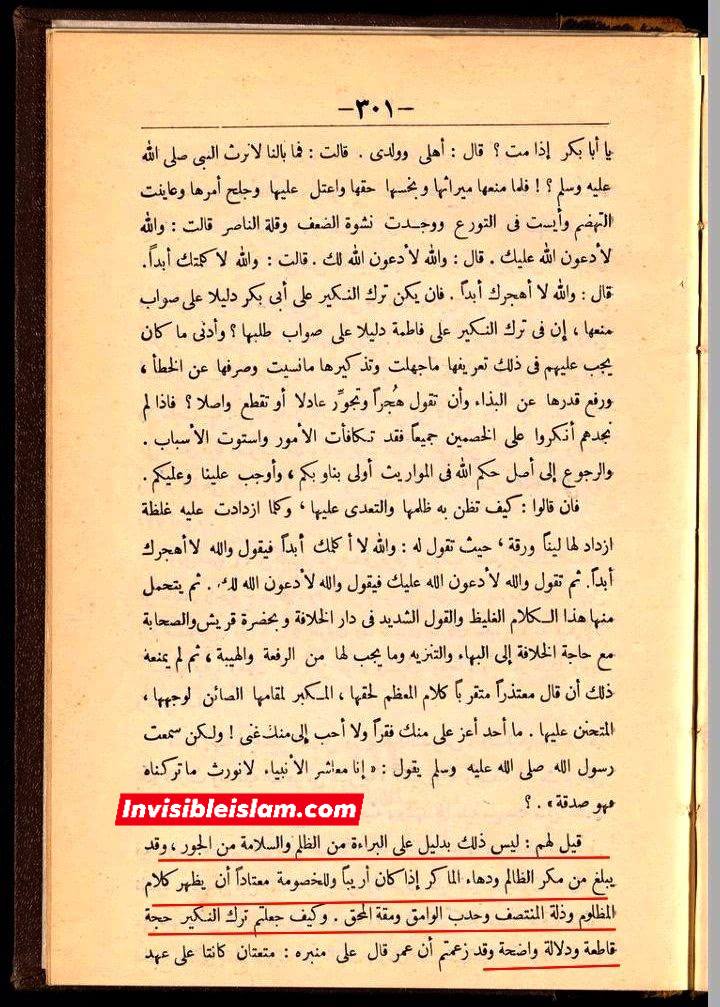 —٣٠١—
يا أبا بكر إذا مت ؟ قال : أهلى وولدى . قالت : فما بالنا لا نرث النبى صلى الله
عليه وسلم ؟ ! فلما منعها ميراثها وبخسها حقها واعتل عليها وجلح أمرها وعاينت
التهضم وأيست فى التورع ووجدت نشوة الضعف وقلة الناصر قالت : والله
لأدعون الله عليك . قال : والله لأدعون الله لك . قالت : والله لا كلمتك أبداً .
قال : والله لا أهجرك أبداً . فان يكن ترك النكير على أبى بكر دليلا على صواب
منعها ، إن فى ترك النكير على فاطمة دليلا على صواب طلبها ؟ وأدنى ما كان
يجب عليهم فى ذلك تعريفها ماجهلت وتذكيرها مانسيت وصرفها عن الخطأ ،
ورفع قدرها عن البذاء وأن تقول هُجراً وتجوِّر عادلا أو تقطع واصلا ؟ فاذا لم
نجدهم أنكروا على الخصمين جميعاً فقد تكافأت الأمور واستوت الأسباب .
والرجوع إلى أصل حكم الله فى المواريث أولى بنا وبكم ، وأوجب علينا وعليكم .
فان قالوا : كيف تظن به ظلمها والتعدى عليها ، وكما ازدادت عليه غلظة
ازداد لها ليناً ورقة ، حيث تقول له : والله لا أكلمك أبداً فيقول والله لا أهجرك
أبداً . ثم تقول والله لأدعون الله عليك فيقول والله لأدعون الله لك . ثم يتحمل
منها هذا الكلام الغليظ والقول الشديد فى دار الخلافة وبحضرة قريش والصحابة
مع حاجة الخلافة إلى البهاء والتنزيه وما يجب لها من الرفعة والهيبة ، ثم لم يمنعه
ذلك أن قال معتذراً متقرباً كلام المعظم لحقها ، المكبر لمقامها الصائن لوجهها ،
المتحنن عليها . ما أحد أعز على منك فقراً ولا أحب إلى منك غنى ! ولكن سمعت
رسول الله صلى الله عليه وسلم يقول : « إنا معاشر الأنبياء لا نورث ما تركناه
فهو صدقة » . ؟
Invisibleislam.com
قيل لهم : ليس ذلك بدليل على البراءة من الظلم والسلامة من الجور ، وقد
يبلغ من مكر الظالم ودهاء الماكر إذا كان أريباً وللخصومة معتاداً أن يظهر كلام
المظلوم وذلة المنتصف وحدب الوامق ومقة المحق . وكيف جعلتم ترك النكير حجة
قاطعة ودلالة واضحة وقد زعمتم أن عمر قال على منبره : متعتان كانتا على عهد